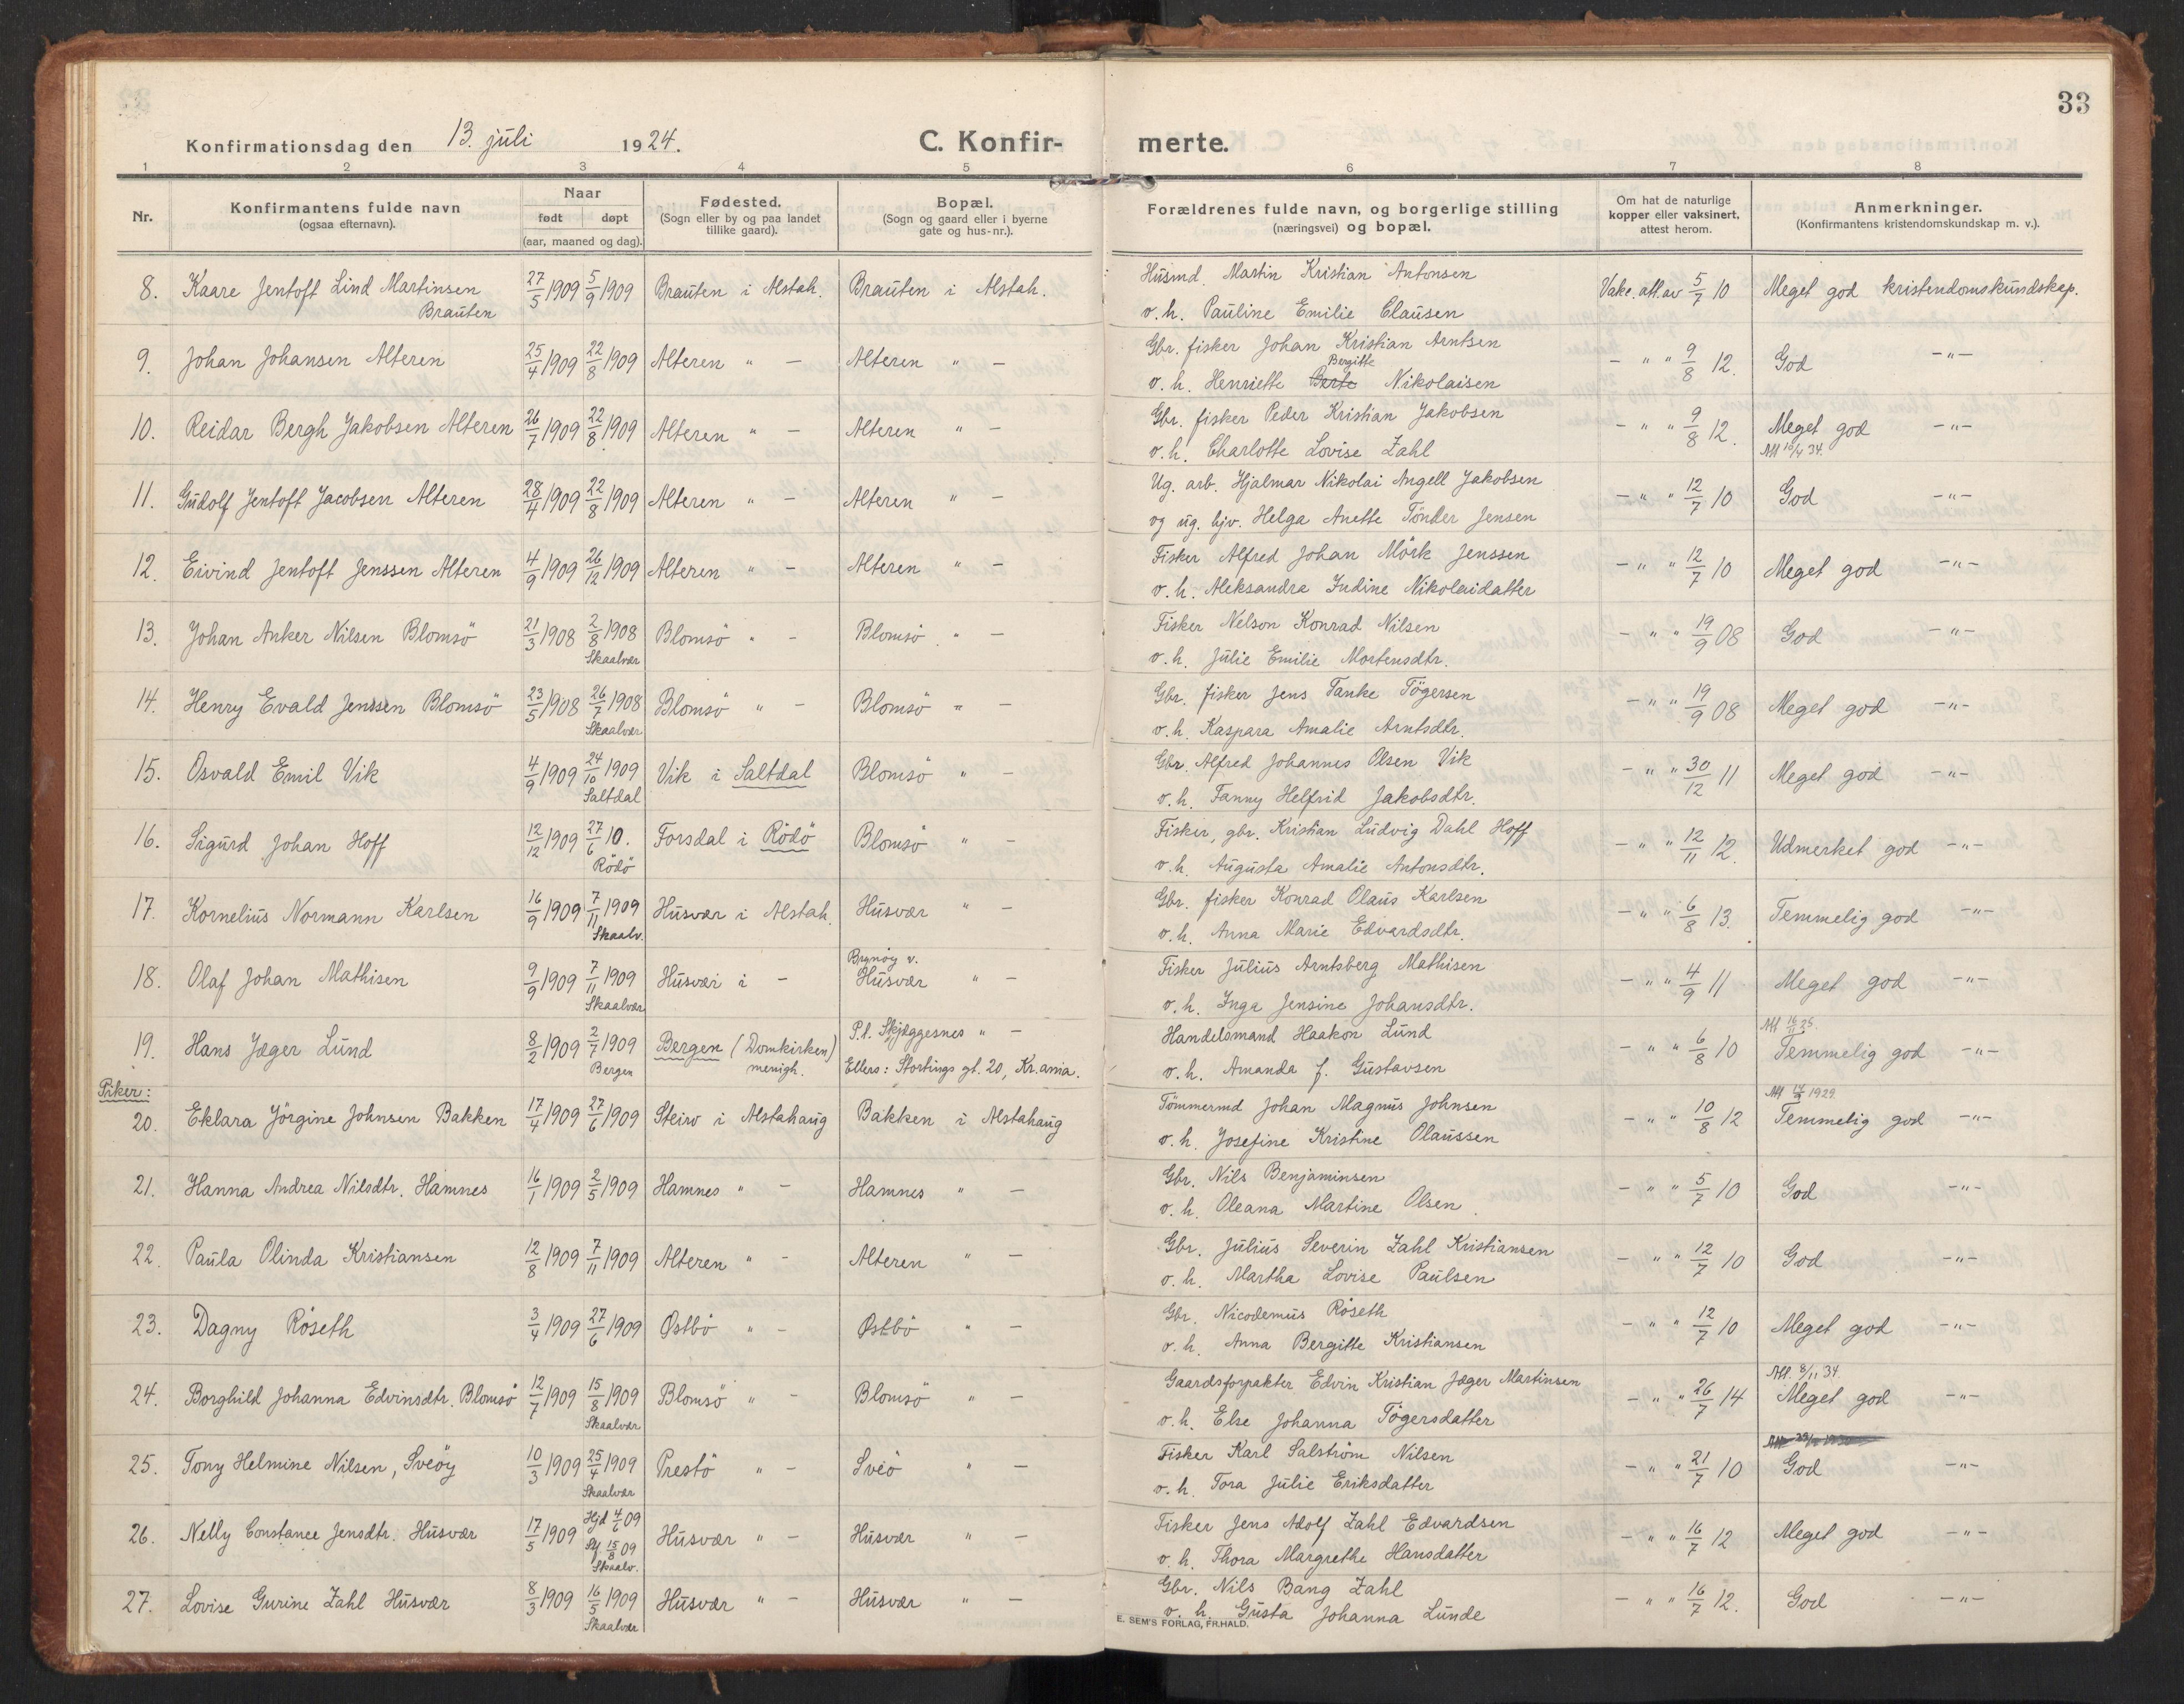 33
Konfirmationsdag den 13. juli 1924. C. Konfirmerte.
1 2 3 4 5 6 7 8
Nr. Konfirmantens fulde navn (ogsaa efternavn). Naar født døpt (aar, maaned og dag). Fødested. (Sogn eller by og paa landet tillike gaard). Bopæl. (Sogn og gaard eller i byerne gate og hus-nr.). Forældrenes fulde navn, og borgerlige stilling (næringsvei) og bopæl. Om hat de naturlige kopper eller vaksinert, attest herom. Anmerkninger. (Konfirmantens kristendomskundskap m. v.).
8. Kaare Jentoft Lind Martinsen Brauten 27/5 1909 5/9 1909 Brauten i Alstah. Brauten i Alstah. Husmd. Martin Kristian Antonsen Vakc. att. av 5/7 10 Meget god kristendomskundskap.
o. h. Pauline Emilie Clausen
9. Johan Johansen Alteren 25/4 1909 22/8 1909 Alteren " - Alteren " - Gbr. fisker Johan Kristian Arntsen - " " 9/8 12. God -"-
o. h. Henriette Berte Bergitte Nikolaisen
10. Reidar Bergh Jakobsen Alteren 26/7 1909 22/8 1909 Alteren " - Alteren " - Gbr. fisker Peder Kristian Jakobsen - " " 9/8 12. Meget god -"-
o. h. Charlotte Lovise Zahl
11. Gudolf Jentoft Jacobsen Alteren 28/4 1909 22/8 1909 Alteren " - Alteren " - Ug. arb. Hjalmar Nikolai Angell Jakobsen - " " 12/7 10 God -"-
og ug. hjv. Helga Anette Tönder Jensen
12. Eivind Jentoft Jenssen Alteren 4/9 1909 26/12 1909 Alteren " - Alteren " - Fisker Alfred Johan Mörk Jenssen - " " 12/7 10 Meget god -"-
o. h. Aleksandra Indine Nikolaidatter
13. Johan Anker Nilsen Blomsö 21/3 1908 2/8 1908 Skaalvær Blomsö " - Blomsö " - Fisker Nelson Konrad Nilsen - " " 19/9 08 God -"-
o. h. Julie Emilie Mortensdtr.
14. Henry Evald Jenssen Blomsö 23/5 1908 26/7 1908 Skaalvær Blomsö " - Blomsö " - Gbr. fisker Jens Tanke Tögersen - " " 19/9 08 Meget god -"-
o. h. Kaspara Amalie Arntsdtr.
15. Osvald Emil Vik 4/9 1909 24/10 1909 Saltdal Vik i Saltdal Blomsö " - Gbr. Alfred Johannes Olsen Vik - " " 30/12 11 Meget god -"-
o. h. Fanny Helfrid Jakobsdtr.
16. Sigurd Johan Hoff 12/12 1909 27/6 10. Rödö Forsdal i Rödö Blomsö " - Fisker, gbr. Kristian Ludvig Dahl Hoff - " " 12/11 12. Udmerket god -"-
o. h. Augusta Amalie Antonsdtr.
17. Kornelius Normann Karlsen 16/9 1909 7/11 1909 Skaalv. Husvær i Alstah. Husvær " - Gbr. fisker Konrad Olaus Karlsen - " " 6/8 13. Temmelig god -"-
o. h. Anna Marie Edvardsdtr.
18. Olaf Johan Mathisen 9/9 1909 7/11 1909 Skaalvær Husvær i - Brynöy v. Husvær " - Fisker Julius Arntsberg Mathisen - " " 4/9 11 Meget god -"-
o. h. Inga Jensine Johansdtr.
19. Hans Jæger Lund 8/2 1909 2/7 1909 Bergen Bergen (Domkirken) menigh. P.t. Skjæggesnes " - Handelsmand Haakon Lund - " " 6/8 10 Temmelig god -"-
Ellers: Stortings gt. 20, Kr.ania. o. h. Amanda f. Gustavsen
Piker:
20. Eklara Jörgine Johnsen Bakken 17/4 1909 27/6 1909 Steiro i Alstahaug Bakken i Alstahaug Tömmermd Johan Magnus Johnsen - " " 10/8 12 Temmelig god -"-
o. h. Josefine Kristine Olaussen
21. Hanna Andrea Nilsdtr. Hamnes 16/1 1909 2/5 1909 Hamnes " - Hamnes " - Gbr. Nils Benjaminsen - " " 5/7 10 God -"-
o. h. Oleana Martine Olsen.
22. Paula Olinda Kristiansen 12/8 1909 7/11 1909 Alteren " - Alteren " - Gbr. Julius Severin Zahl Kristiansen - " " 12/7 10 God -"-
o. h. Martha Lovise Paulsen
23. Dagny Röseth 3/4 1909 27/6 1909 Østbö " - Østbö " - Gbr. Nicodemus Röseth - " " 12/7 10 Meget god -"-
o. h. Anna Bergitte Kristiansen
24. Borghild Johanna Edvinsdtr. Blomsö 12/7 1909 15/8 1909 Skaalvær Blomsö " - Blomsö " - Gaardsforpakter Edvin Kristian Jæger Martinsen - " " 26/7 14 Att. 8/11 34. Meget god -"-
o. h. Else Johanna Tögersdatter
25. Tony Helmine Nilsen, Sveöy 10/3 1909 25/4 1909 Skaalvær Prestö " - Sveö " - Fisker Karl Salström Nilsen - " " 21/7 10 God -"-
o. h. Tora Julie Eriksdatter
26. Nelly Constance Jensdtr. Husvær 17/5 1909 Hjd 4/6 09 St 15/8 09 Skaalv. Husvær " - Husvær " - Fisker Jens Adolf Zahl Edvardsen - " " 16/7 12 Meget god -"-
o. h. Thora Margrethe Hansdatter
27. Lovise Gurine Zahl Husvær 8/3 1909 16/5 1909 Skaalvær Husvær " - Husvær " - Gbr. Nils Bang Zahl - " " 16/7 12. God -"-
o. h. Gusta Johanna Lunde
E. SEM'S FORLAG, FR.HALD.